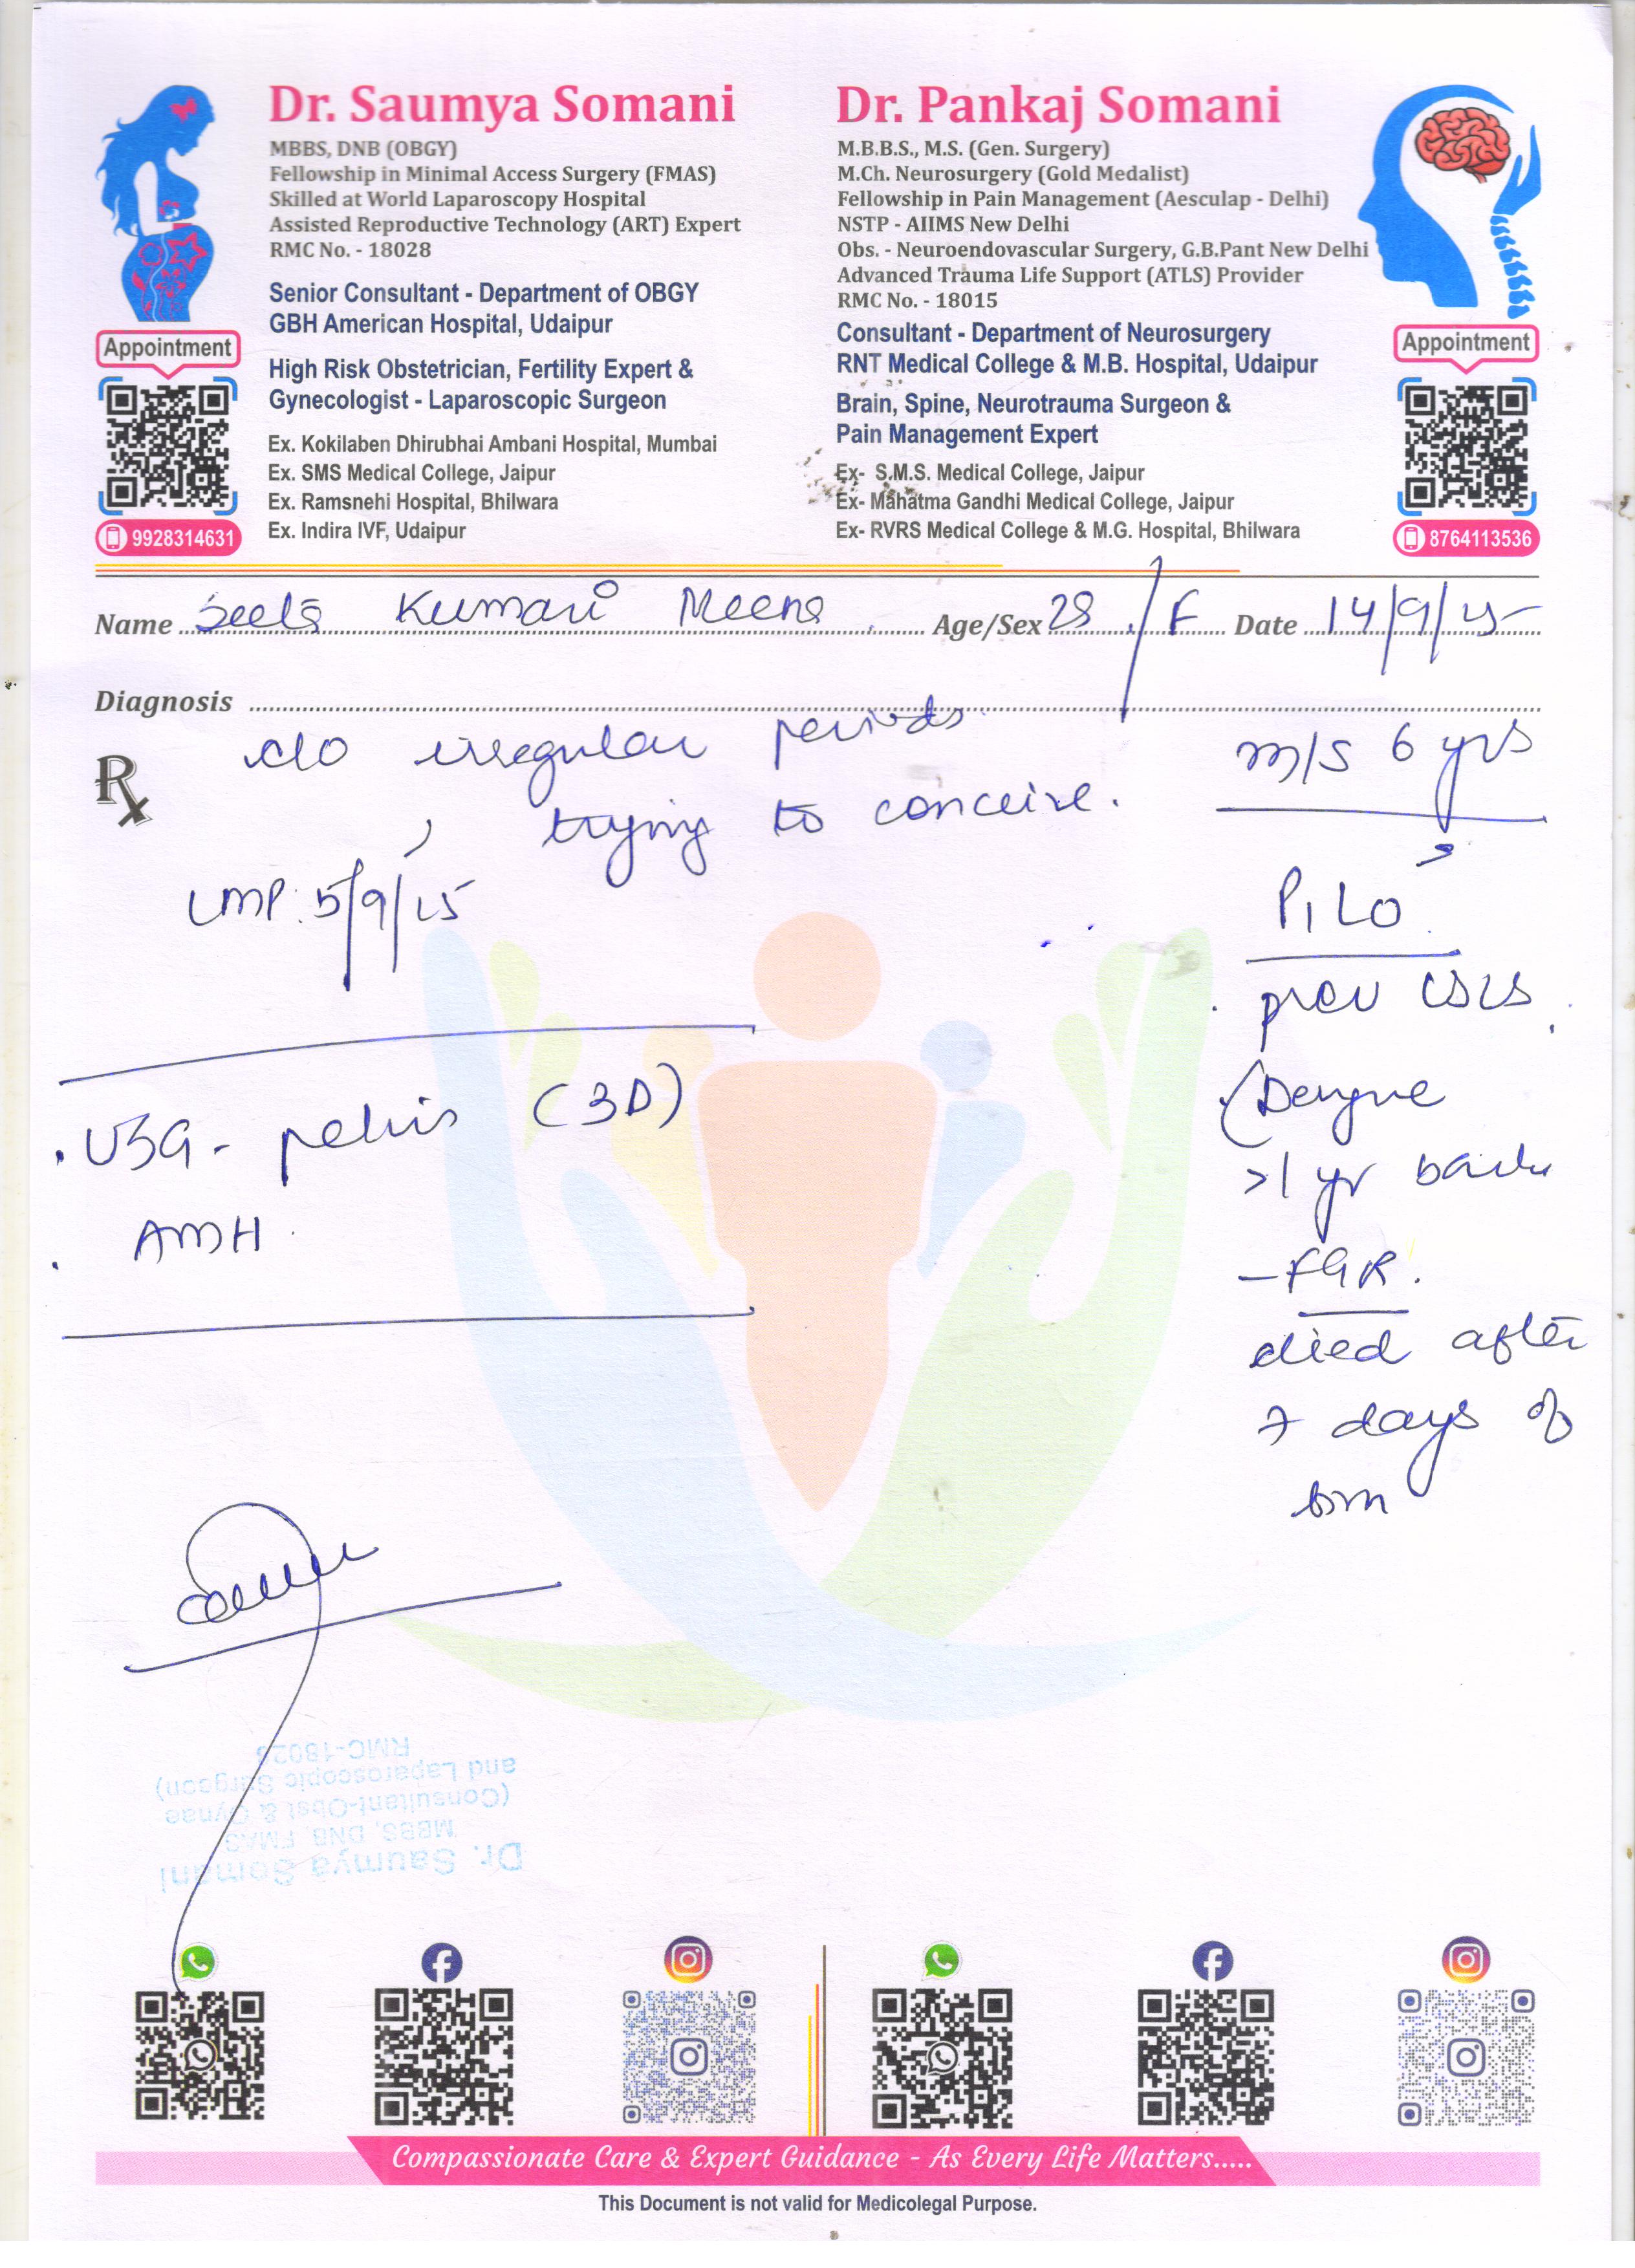 Dr. Saumya Somani
MBBS, DNB (OBGY)
Fellowship in Minimal Access Surgery (FMAS)
Skilled at World Laparoscopy Hospital
Assisted Reproductive Technology (ART) Expert
RMC No. - 18028
Senior Consultant - Department of OBGY
GBH American Hospital, Udaipur
High Risk Obstetrician, Fertility Expert &
Gynecologist - Laparoscopic Surgeon
Ex. Kokilaben Dhirubhai Ambani Hospital, Mumbai
Ex. SMS Medical College, Jaipur
Ex. Ramsnehi Hospital, Bhilwara
Ex. Indira IVF, Udaipur
Appointment
9928314631
Dr. Pankaj Somani
M.B.B.S., M.S. (Gen. Surgery)
M.Ch. Neurosurgery (Gold Medalist)
Fellowship in Pain Management (Aesculap - Delhi)
NSTP - AIIMS New Delhi
Obs. - Neuroendovascular Surgery, G.B.Pant New Delhi
Advanced Trauma Life Support (ATLS) Provider
RMC No. - 18015
Consultant - Department of Neurosurgery
RNT Medical College & M.B. Hospital, Udaipur
Brain, Spine, Neurotrauma Surgeon &
Pain Management Expert
Ex- S.M.S. Medical College, Jaipur
Ex- Mahatma Gandhi Medical College, Jaipur
Ex- RVRS Medical College & M.G. Hospital, Bhilwara
Appointment
8764113536
Name Seeta Kumari Meena Age/Sex 28 / F Date 14/9/25
Diagnosis
Rx
c/o irregular periods
, trying to conceive.
LMP: 5/9/25
. USG - pelvis (3D)
. AMH
m/s 6 yrs
P1L0
prev LSCS
(Dengue
>1 yr back
- FGR.
died after
7 days of
Dr. Saumya Somani
MBBS, DNB, FMAS
(Consultant-Obst & Gynae
and Laparoscopic Surgeon)
RMC-18028
Compassionate Care & Expert Guidance - As Every Life Matters.....
This Document is not valid for Medicolegal Purpose.